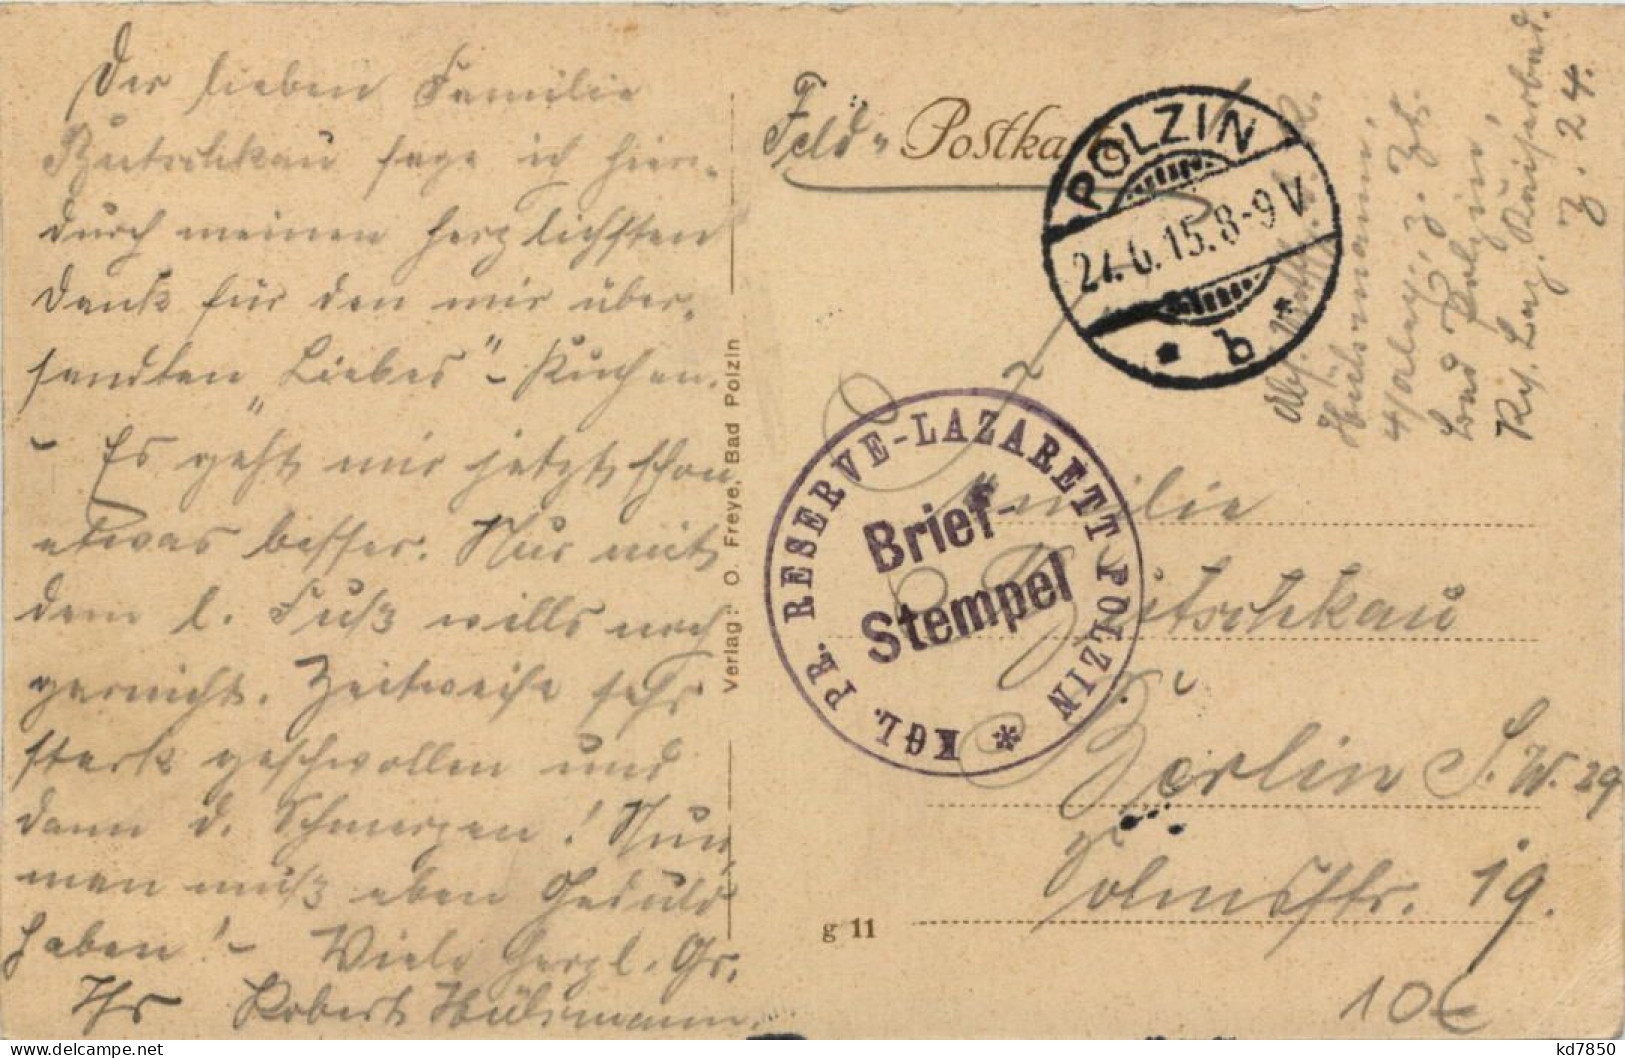 Der lieben Familie
Bütschkau sage ich hier-
durch meinen herzlichsten
Dank für den mir über-
sandten "Liebes" - Kuchen.
- Es geht mir jetzt schon
etwas besser. Nur mit
dem l. Fuß wills noch
garnicht. Zeitweise sehr
stark geschwollen und
dann d. Schmerzen! Nun,
man muß eben Geduld
haben! - Viele herzl. Gr.
Ihr Robert Hülsmann.
Verlag: O. Freye, Bad Polzin
Feld- Postka
POLZIN
24.6.15.8-9V
* b *
Hülsmann,
z. Zt.
Bad Polzin,
Kgl. Laz. Kaiserbad.
Z. 24.
KGL. PR. RESERVE-LAZARETT POLZIN *
Brief-
Stempel
Familie
Bütschkau
Berlin S.W. 29
Solmsstr. 19.
g 11
10€
kd7850